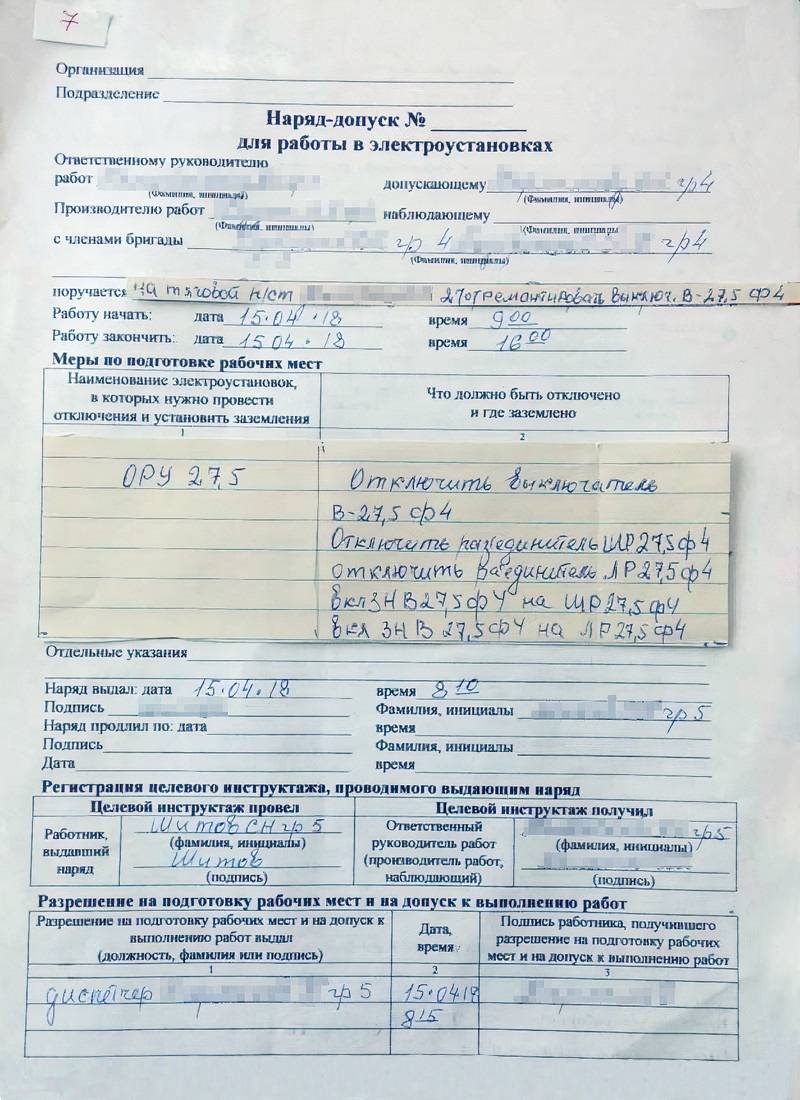 7
Организация
Подразделение
Наряд-допуск №
для работы в электроустановках
Ответственному руководителю
работ допускающему гр4
(Фамилия, инициалы) (Фамилия, инициалы)
Производителю работ наблюдающему
(Фамилия, инициалы) (Фамилия, инициалы
с членами бригады гр 4 гр4
(Фамилия, инициалы)
поручается на тяговой п/ст отремонтировать выключ. В-27,5 ф4
Работу начать: дата 15.04.18 время 9 00
Работу закончить: дата 15 04.18 время 16 00
Меры по подготовке рабочих мест
Наименование электроустановок,
в которых нужно провести
отключения и установить заземления
Что должно быть отключено
и где заземлено
1 2
ОРУ 27,5
Отключить выключатель
В-27,5 ф4
Отключить разъединитель ШР27,5ф4
отключить ЛР27,5ф4
вкл ЗН В27,5ф4 на ШР27,5ф4
вкл ЗН В 27,5ф4 на ЛР27,5ф4
Отдельные указания
Наряд выдал: дата 15.04.18 время 8 10
Подпись Фамилия, инициалы гр 5
Наряд продлил по: дата время
Подпись Фамилия, инициалы
Дата время
Регистрация целевого инструктажа, проводимого выдающим наряд
Целевой инструктаж провел Целевой инструктаж получил
Работник,
выдавший
наряд
Шитов СН гр 5
(фамилия, инициалы)
Шитов
(подпись)
Ответственный
руководитель работ
(производитель работ,
наблюдающий)
гр5
(фамилия, инициалы)
(подпись)
Разрешение на подготовку рабочих мест и на допуск к выполнению работ
Разрешение на подготовку рабочих мест и на допуск к
выполнению работ выдал
(должность, фамилия или подпись)
Дата,
время
Подпись работника, получившего
разрешение на подготовку рабочих
мест и на допуск к выполнению работ
1 2 3
диспетчер гр 5 15.04 18
8 15